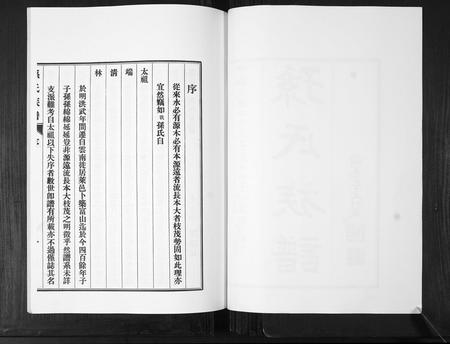 序
從來水必有源木必有本源遠者流長本大者枝茂勢固如此理亦
宜然竊如我孫氏自
太祖
端
清
林
於明洪武年間遷自雲南徙居萊邑卜築富山迄於今四百餘年子
子孫孫綿綿延延豈非源遠流長本大枝茂之明徵乎然譜系未詳
支派難考自太祖以下失序者數世即譜有所載亦不過係誌其名
孫氏族譜
序
孫氏族譜